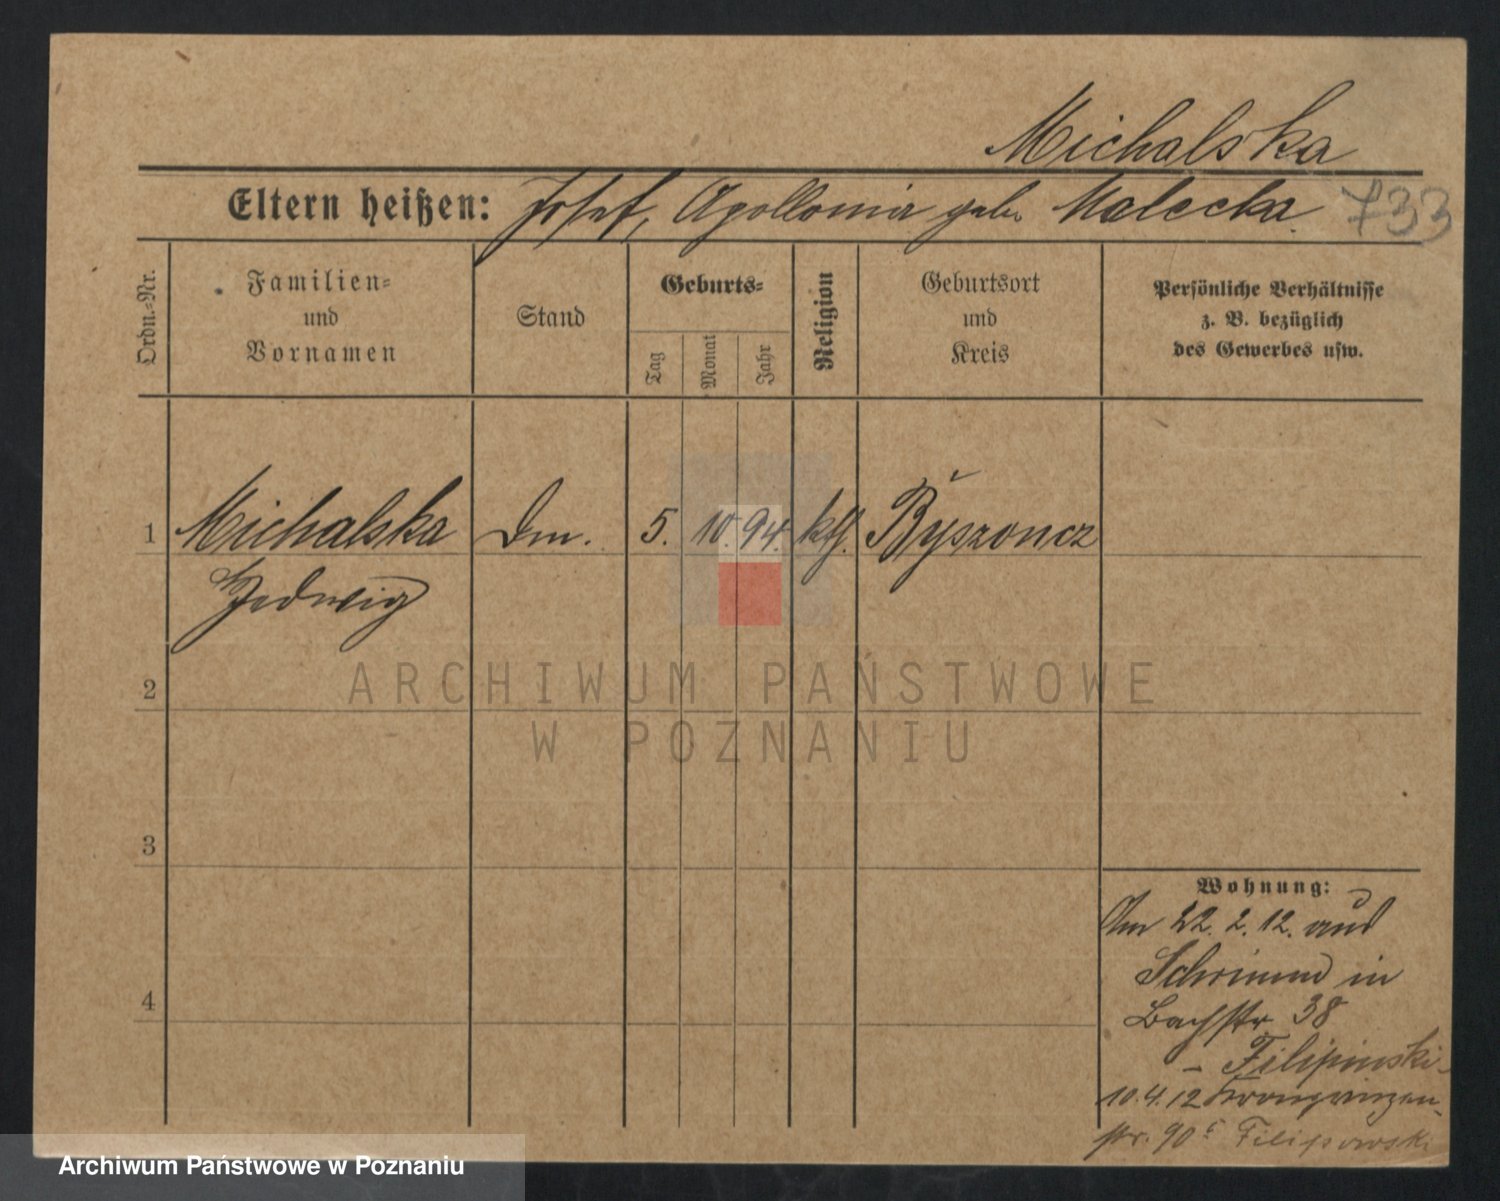 Michalska
Eltern heißen: Josef, Apollonia geb. Malecka. 733
Ordn.-Nr.
Familien-
und
Vornamen
Stand
Geburts-
Tag
Monat
Jahr
Religion
Geburtsort
und
Kreis
Persönliche Verhältnisse
z. B. bezüglich
des Gewerbes usw.
1 Michalska Dm. 5. 10. 94. kth. Byszoncz
Hedwig
ARCHIWUM PAŃSTWOWE
W POZNANIU
2
3
4
Wohnung:
Am 22. 2. 12. aus
Schrimm in
Bachstr 38
- Filipinski-
10.4.12 Kronprinzen-
str. 90 Filipowski
Archiwum Państwowe w Poznaniu